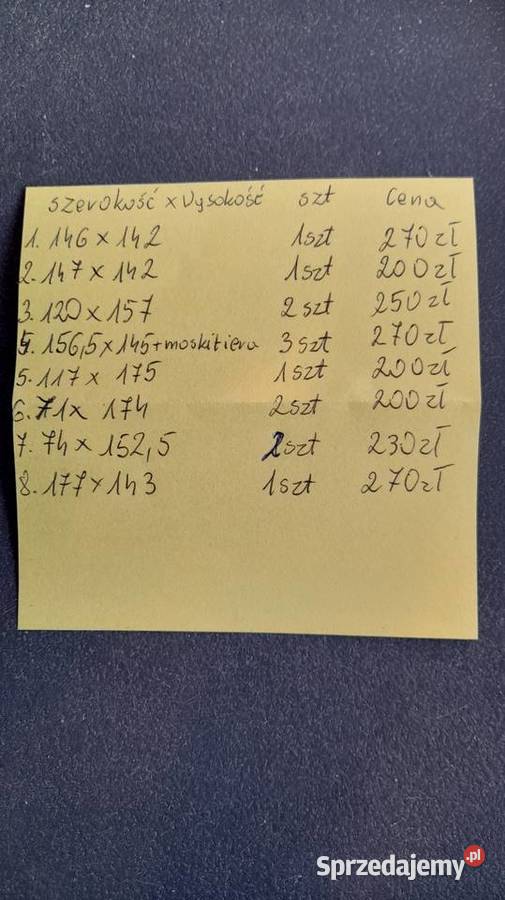 szerokość x wysokość szt Cena
1. 146 x 142 1szt 270zł
2. 147 x 142 1szt 200zł
3. 120 x 157 2szt 250zł
5. 156,5 x 145 + moskitiera 3szt 270zł
5. 117 x 175 1szt 200zł
6. 71 x 174 2szt 200zł
7. 74 x 152,5 szt 230zł
8. 177 x 143 1szt 270zł
Sprzedajemy.pl